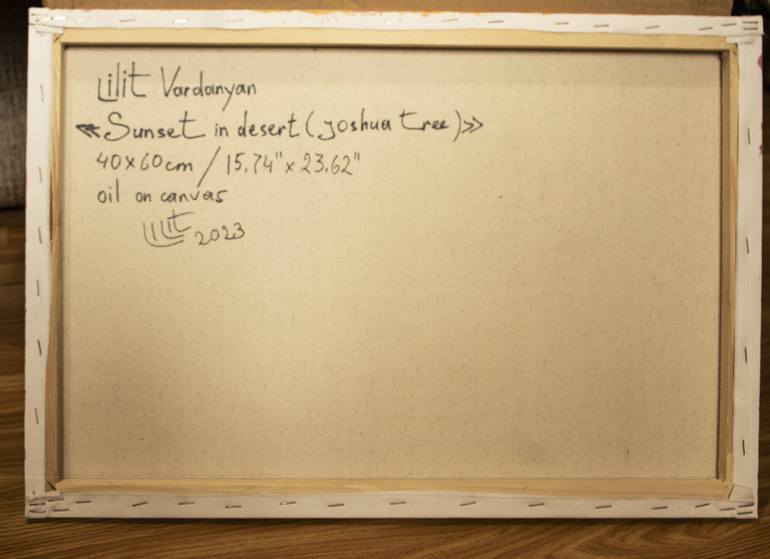 Lilit Vardanyan
«Sunset in desert (Joshua tree)»
40x60cm / 15.74" x 23.62"
oil on canvas
Lilit 2023